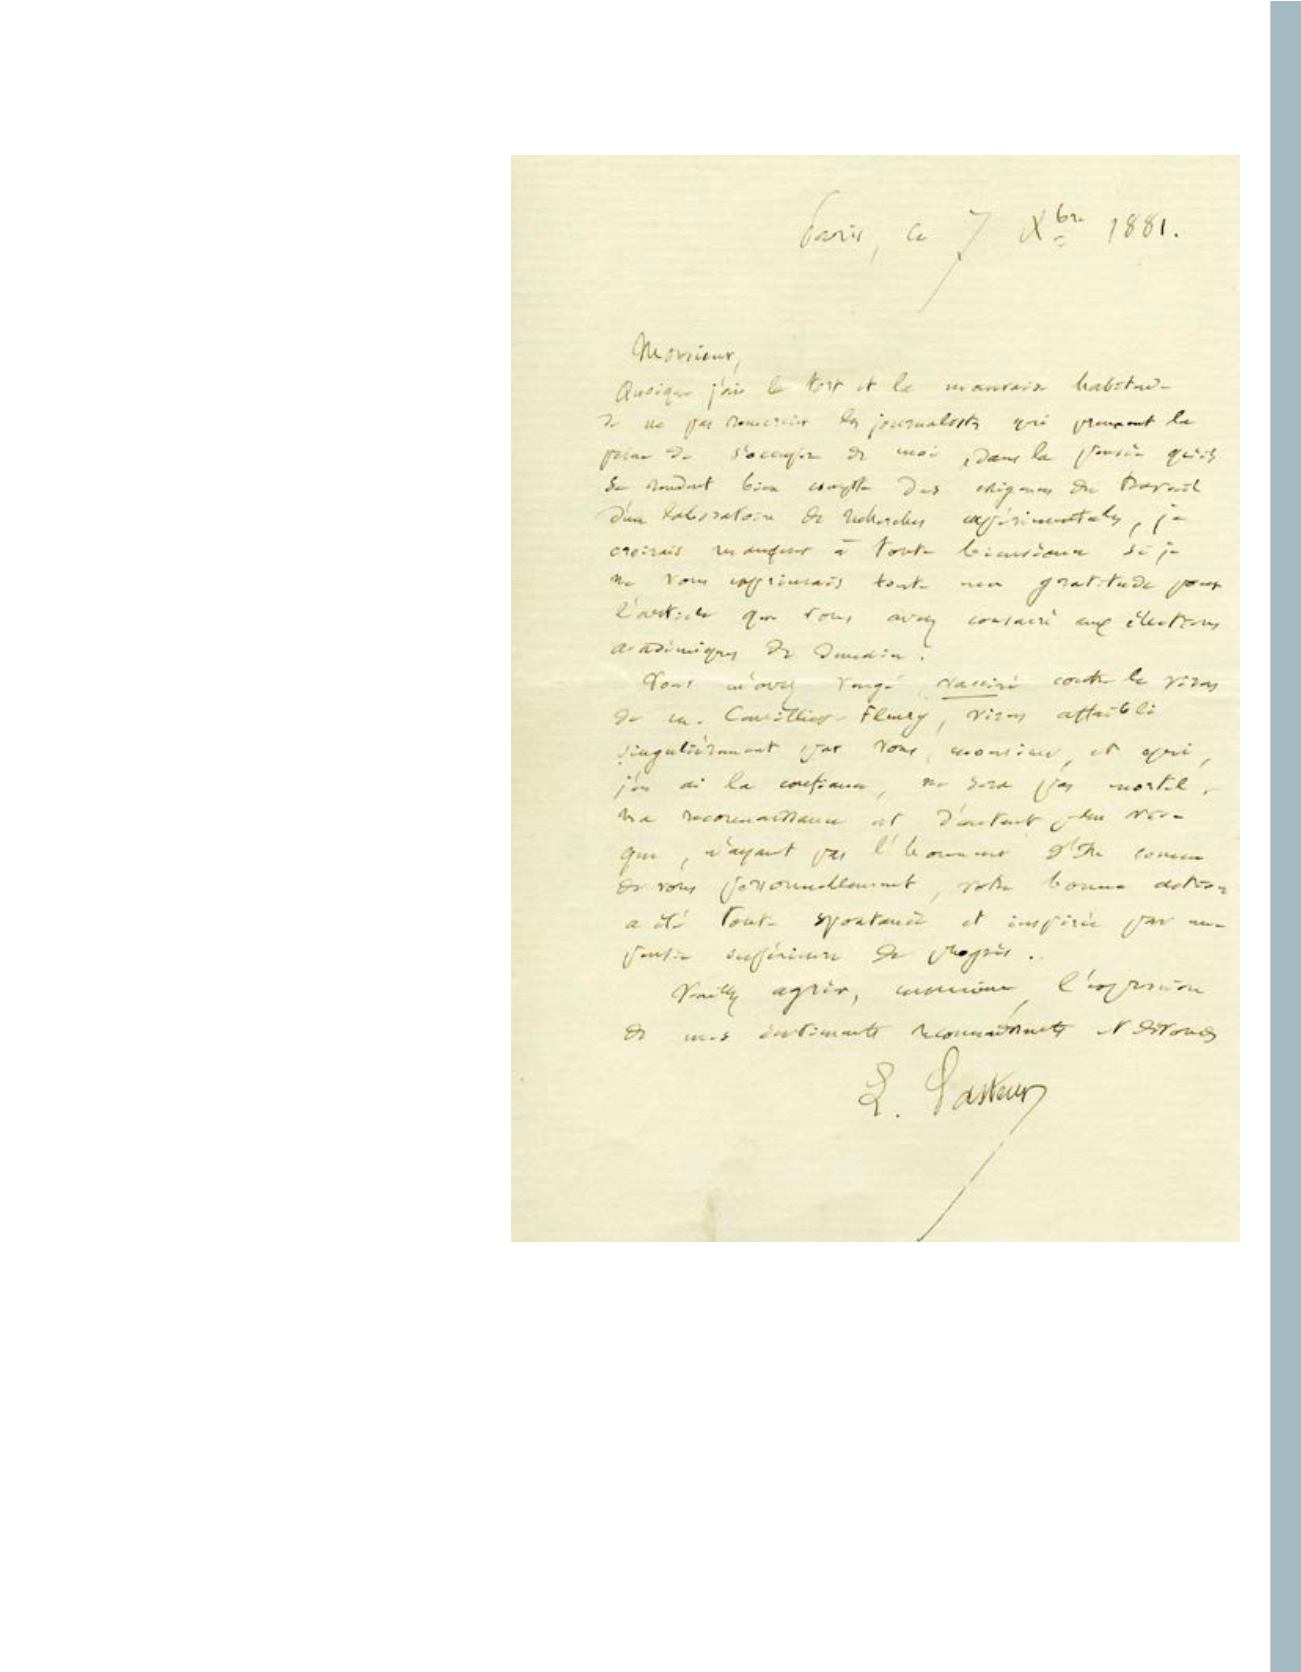 Paris, ce 7 Xbre 1881.
Monsieur,
Quoique j'aie le tort et la mauvaise habitude
de ne pas remercier les journalistes qui prennent la
peine de s'occuper de moi, dans la pensée qu'ils
se rendent bien compte des exigences du travail
d'un laboratoire de recherches expérimentales, je
croirais manquer à toute bienséance si je
ne vous exprimais toute ma gratitude pour
l'article que vous avez consacré aux élections
académiques de demain.
Vous m'avez vengé, vacciné contre le virus
de M. Cuvillier-Fleury, virus affaibli
singulièrement par vous, monsieur, et qui,
j'en ai la confiance, ne sera pas mortel.
Ma reconnaissance est d'autant plus vive
que, n'ayant pas l'honneur d'être connu
de vous personnellement, votre bonne action
a été toute spontanée et inspirée par une
pensée supérieure de progrès.
Veuillez agréer, monsieur, l'expression
de mes sentiments reconnaissants et dévoués
L. Pasteur